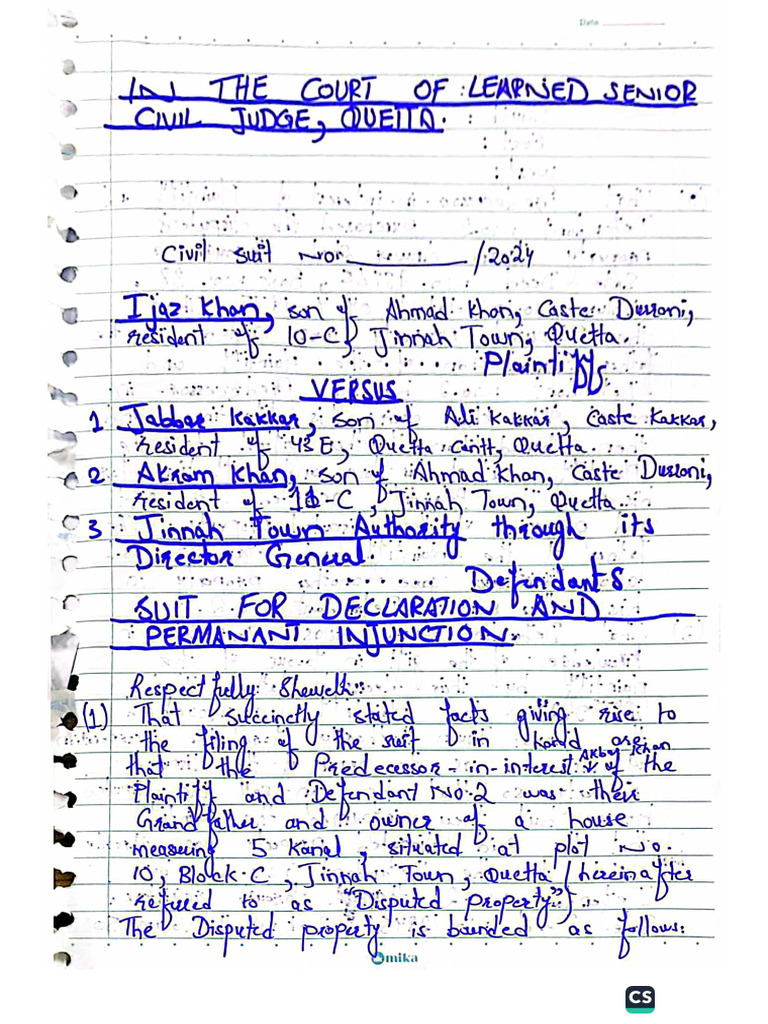 Date
IN THE COURT OF LEARNED SENIOR
CIVIL JUDGE, QUETTA.
Civil suit No. ________ /2024
Ijaz Khan, son of Ahmad Khan, Caste Durrani,
resident of 10-C, Jinnah Town, Quetta.
Plaintiffs
VERSUS
1 Jabbar Kakkar, son of Ali Kakkar, Caste Kakkar,
resident of 43 E, Quetta Cantt, Quetta.
2 Akram Khan, son of Ahmad Khan, Caste Durrani,
resident of 10-C, Jinnah Town, Quetta.
3 Jinnah Town Authority through its
Director General.
Defendants
SUIT FOR DECLARATION AND
PERMANANT INJUNCTION.
Respectfully Sheweth:
(1) That succinctly stated facts giving rise to
the filing of the suit in hand are
that the Predecessor-in-interest Akbar Khan of the
Plaintiff and Defendant No.2 was their
Grandfather and owner of a house
measuring 5 kanal, situated at plot No.
10, Block-C, Jinnah Town, Quetta (hereinafter
refered to as "Disputed Property").
The Disputed property is bounded as follows:
mika
CS